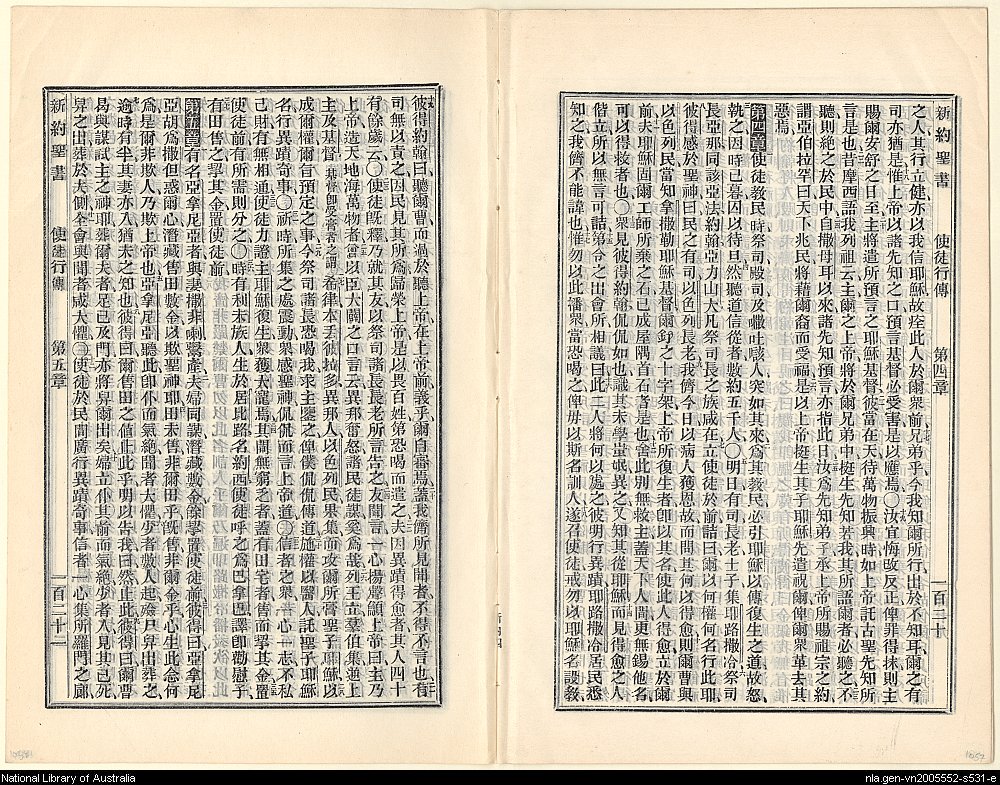 新約聖書　使徒行傳　第四章　一百二十
之人其行立健亦以我信耶穌故痊此人於爾衆前兄弟乎今我知爾所行出於不知耳爾之有
司亦猶是惟上帝以諸先知之口預言基督必受害是以應焉〇汝宜悔改反正俾罪得抹則主
賜爾安舒之日至主將遣所預言之耶穌基督彼當在天待萬物振興時如上帝託古聖先知所
言是也昔摩西語我列祖云主爾之上帝將於爾兄弟中挺生先知若我其所語爾者必聽之不
聽則絕之於民中自撒母耳以來諸先知預言亦指此日汝爲先知弟子承上帝所賜祖宗之約
謂亞伯拉罕曰天下兆民將藉爾裔而受福是以上帝挺生其子耶穌先遣祝爾俾爾衆革去其
惡焉
第四章使徒教民時祭司殿司及㗐吐㗇人突如其來爲其教民必引耶穌以傳復生之道故怒
執之因時已暮囚以待旦然聽道信從者數約五千人〇明日有司長老士子集耶路撒冷祭司
長亞那同該亞法約翰亞力山大凡祭司長之族咸在立使徒於前詰曰爾以何權何名行此耶
彼得感於聖神曰民之有司以色列長老我儕今日以病人獲恩故而問其何以得愈則爾曹與
以色列民當知拿撒勒耶穌基督爾釘之十字架上帝所復生者卽以其名使此人得愈立於爾
前夫耶穌固爾工師所棄之石已成屋隅首石者是也舍此別無救主蓋天下人間更無錫他名
可以得救者也〇衆見彼得約翰侃侃如也識其未學蚩氓異之又知其從耶穌而見得愈之人
偕立所以無言可詰弟令之出會所相議曰此二人將何以處之彼明行異蹟耶路撒冷居民悉
知之我儕不能諱也惟勿以此播衆當恐喝之俾毋以斯名訓人遂召使徒戒勿以耶穌名設教
新約聖書　使徒行傳　第五章　一百二十二
彼得約翰曰聽爾曹而過於聽上帝在上帝前義乎爾自審焉蓋我儕所見聞者不得不言也有
司無以責之因民見其所爲歸榮上帝是以畏百姓第恐喝而遣之夫因異蹟得愈者其人四十
有餘歲云〇使徒旣釋乃就其友以祭司諸長長老所言告之友聞言一心揚聲籲上帝曰主乃
上帝造天地海萬物者嘗以臣大闢之口言云異邦奮怒諸民徒謀奚爲哉列王立羣伯集逆上
主及基督希律本丢彼拉多異邦人以色列民畢集而攻爾所膏聖子耶穌以
成爾權爾旨預定之事今祭司諸長恐喝我求主鑒之俾僕侃侃傳道施權以醫人託聖子耶穌
名行異蹟奇事〇祈時所集之處震動衆感聖神侃侃而言上帝道〇信者之衆一心一志不私
己財有無相通使徒力證主耶穌復生衆獲大寵焉其間無窮乏者蓋有田宅者售而挈其金置
使徒前有所需則分之〇時有利未族人生於居比路名約西使徒呼之爲巴拿巴譯卽勸慰子
有田售之挈其金置使徒前
第五章有名亞拿尼亞者與妻撒非喇鬻產夫婦同謀潛藏數金以餘挈置使徒前彼得曰亞拿尼
亞胡爲撒但惑爾心潛藏售田數金以欺聖神耶田未售非爾田乎旣售非爾金乎心生此念何
爲是爾非欺人乃欺上帝也亞拿尼亞聽此卽仆而氣絕聞者大懼少者數人起殮尸舁出葬之
逾時有半其妻亦入猶未之知也彼得曰爾售田之値止此乎明以吿我曰然止此彼得曰爾曹
曷與謀試主之神耶葬爾夫者足已及門亦將舁爾出矣婦立仆其前而氣絕少者入見其已死
舁之出葬於夫側全會與聞者咸大懼〇使徒於民間廣行異蹟奇事信者一心集所羅門之廊
National Library of Australia
nla.gen-vn2005552-s531-e